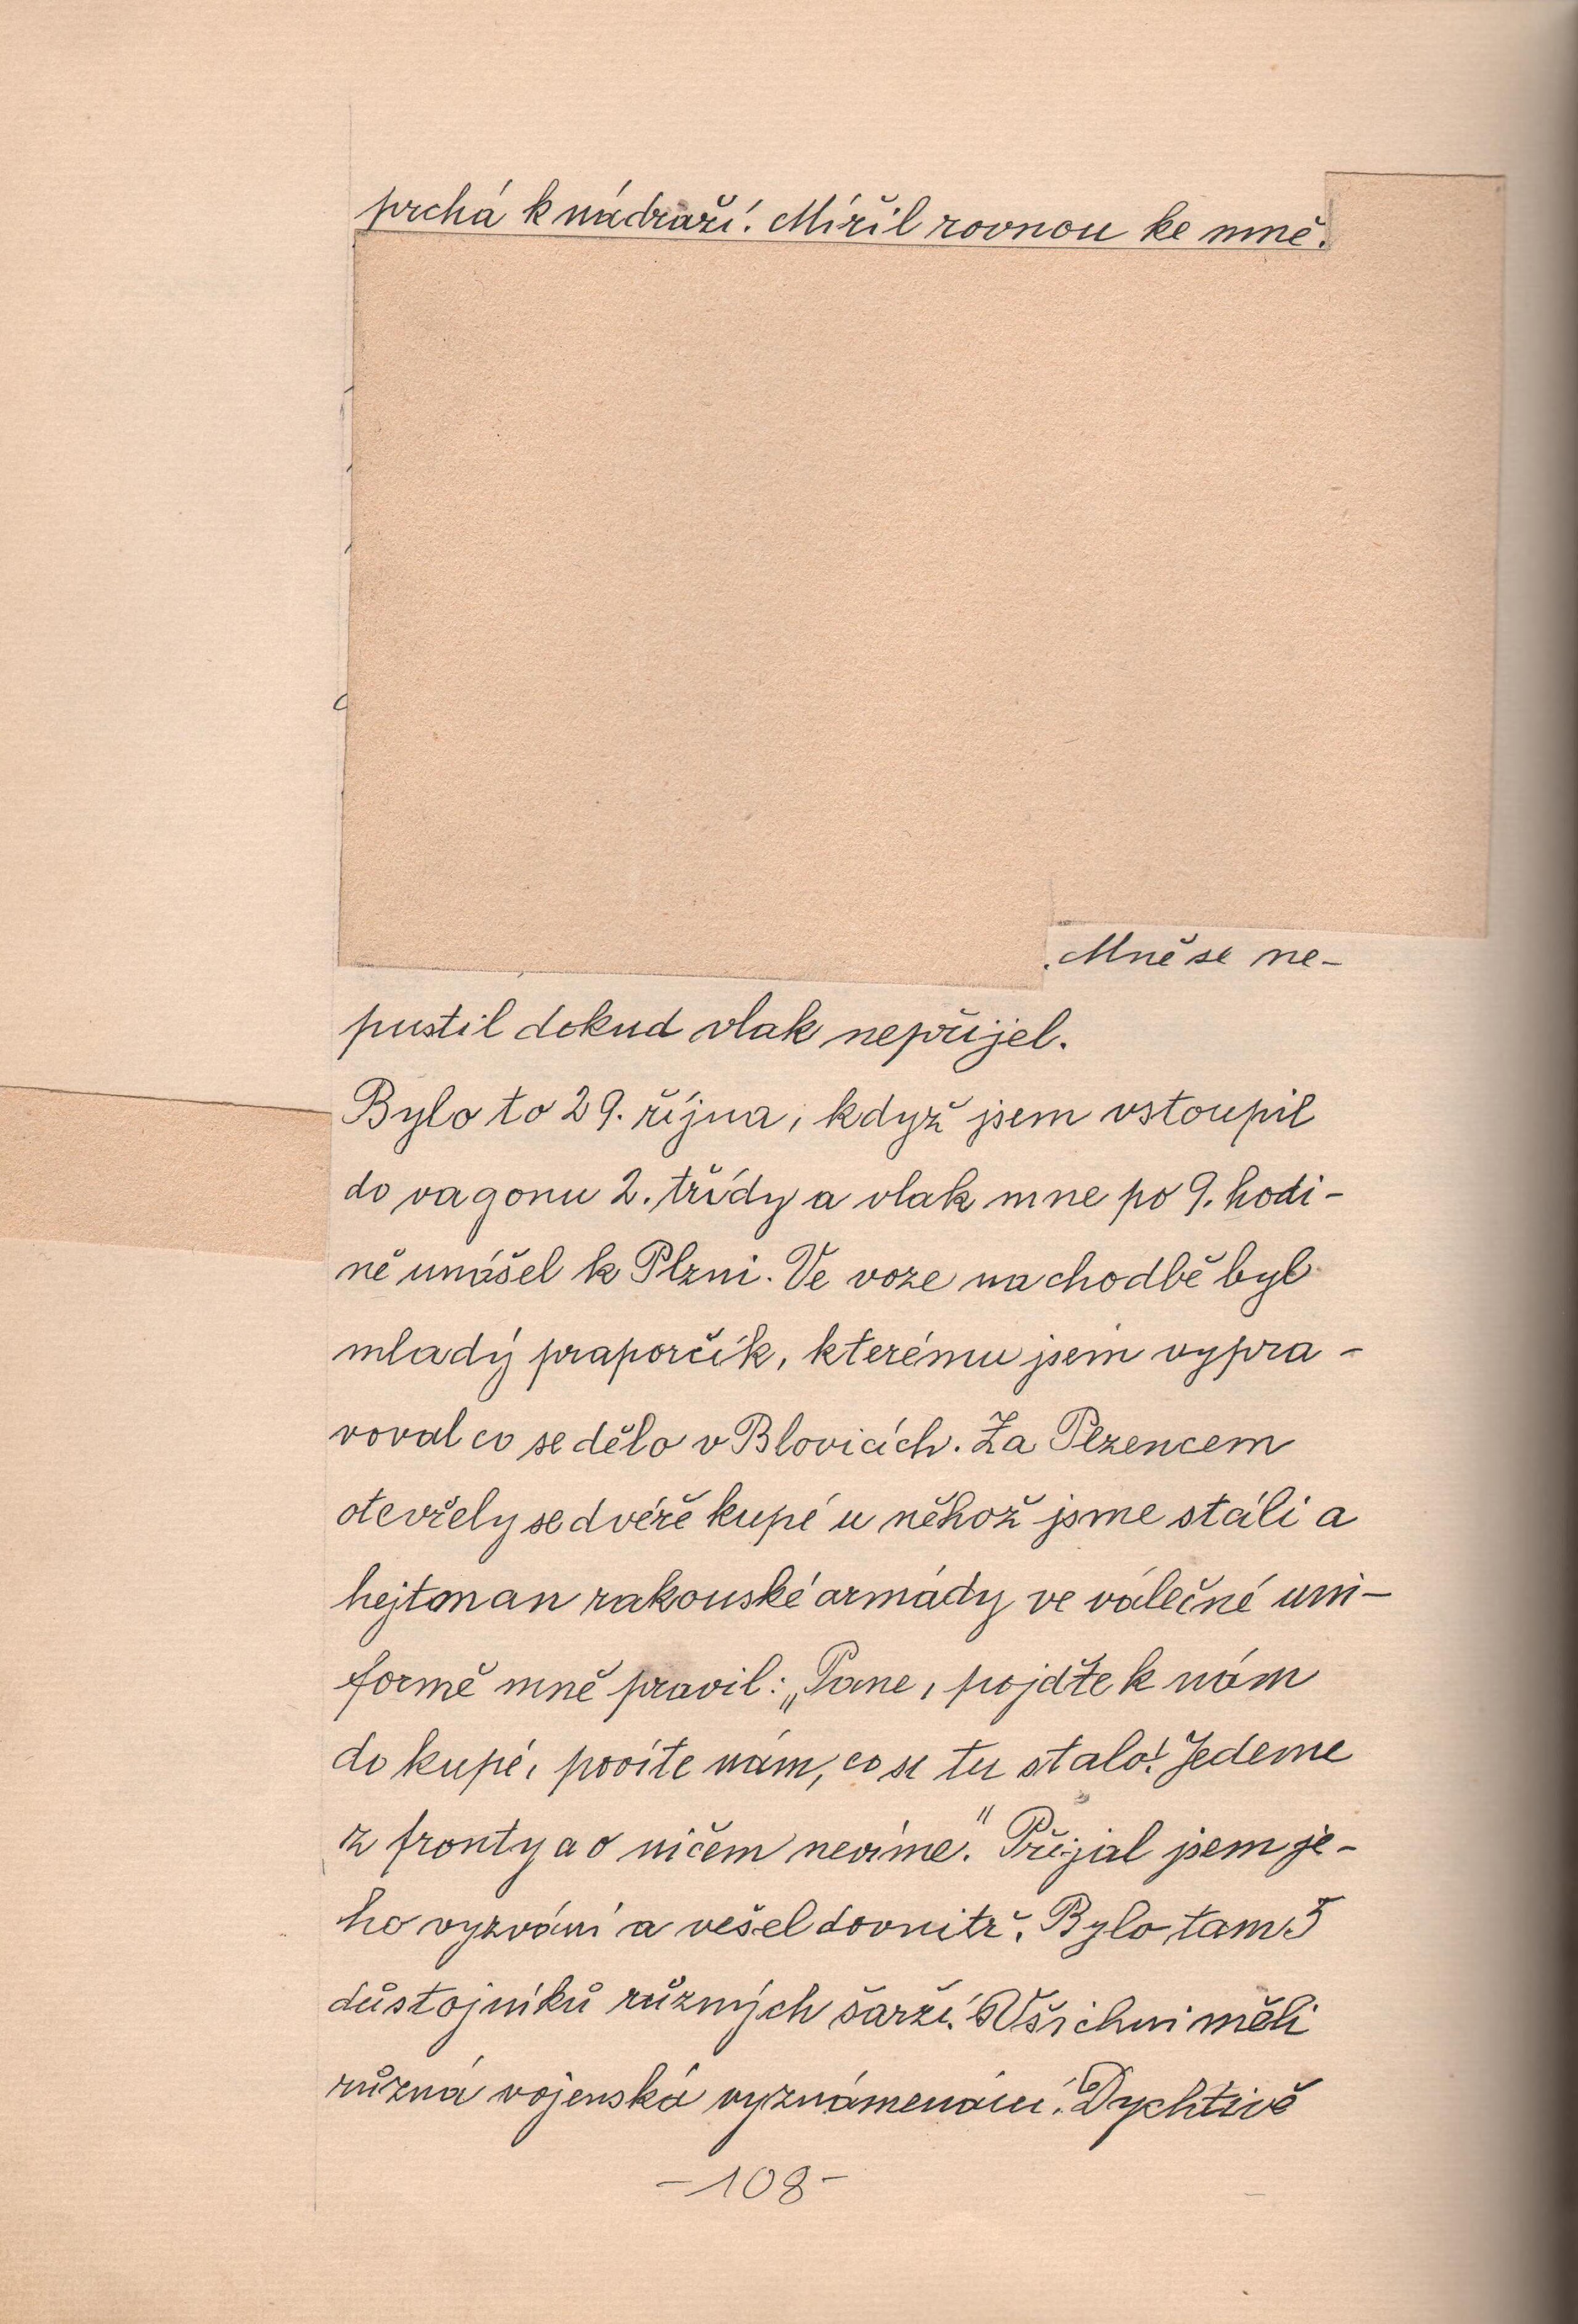 prchá k nádraží. Mířil rovnou ke mně.
Mně se ne-
pustil dokud vlak nepřijel.
Bylo to 29. října, když jsem vstoupil
do vagonu 2. třídy a vlak mne po 9. hodi-
ně unášel k Plzni. Ve voze na chodbě byl
mladý praporčík, kterému jsem vypra-
voval co se dělo v Blovicích. Za Plzencem
otevřely se dvéře kupé u něhož jsme stáli a
hejtman rakouské armády ve válečné uni-
formě mně pravil: „Pane, pojďte k nám
do kupé, povíte nám, co se tu stalo! Jedeme
z fronty a o ničem nevíme." Přijal jsem je-
ho vyzvání a vešel dovnitř. Bylo tam 5
důstojníků různých šarží. Všichni měli
různá vojenská vyznámenání. Dychtivě
-108-